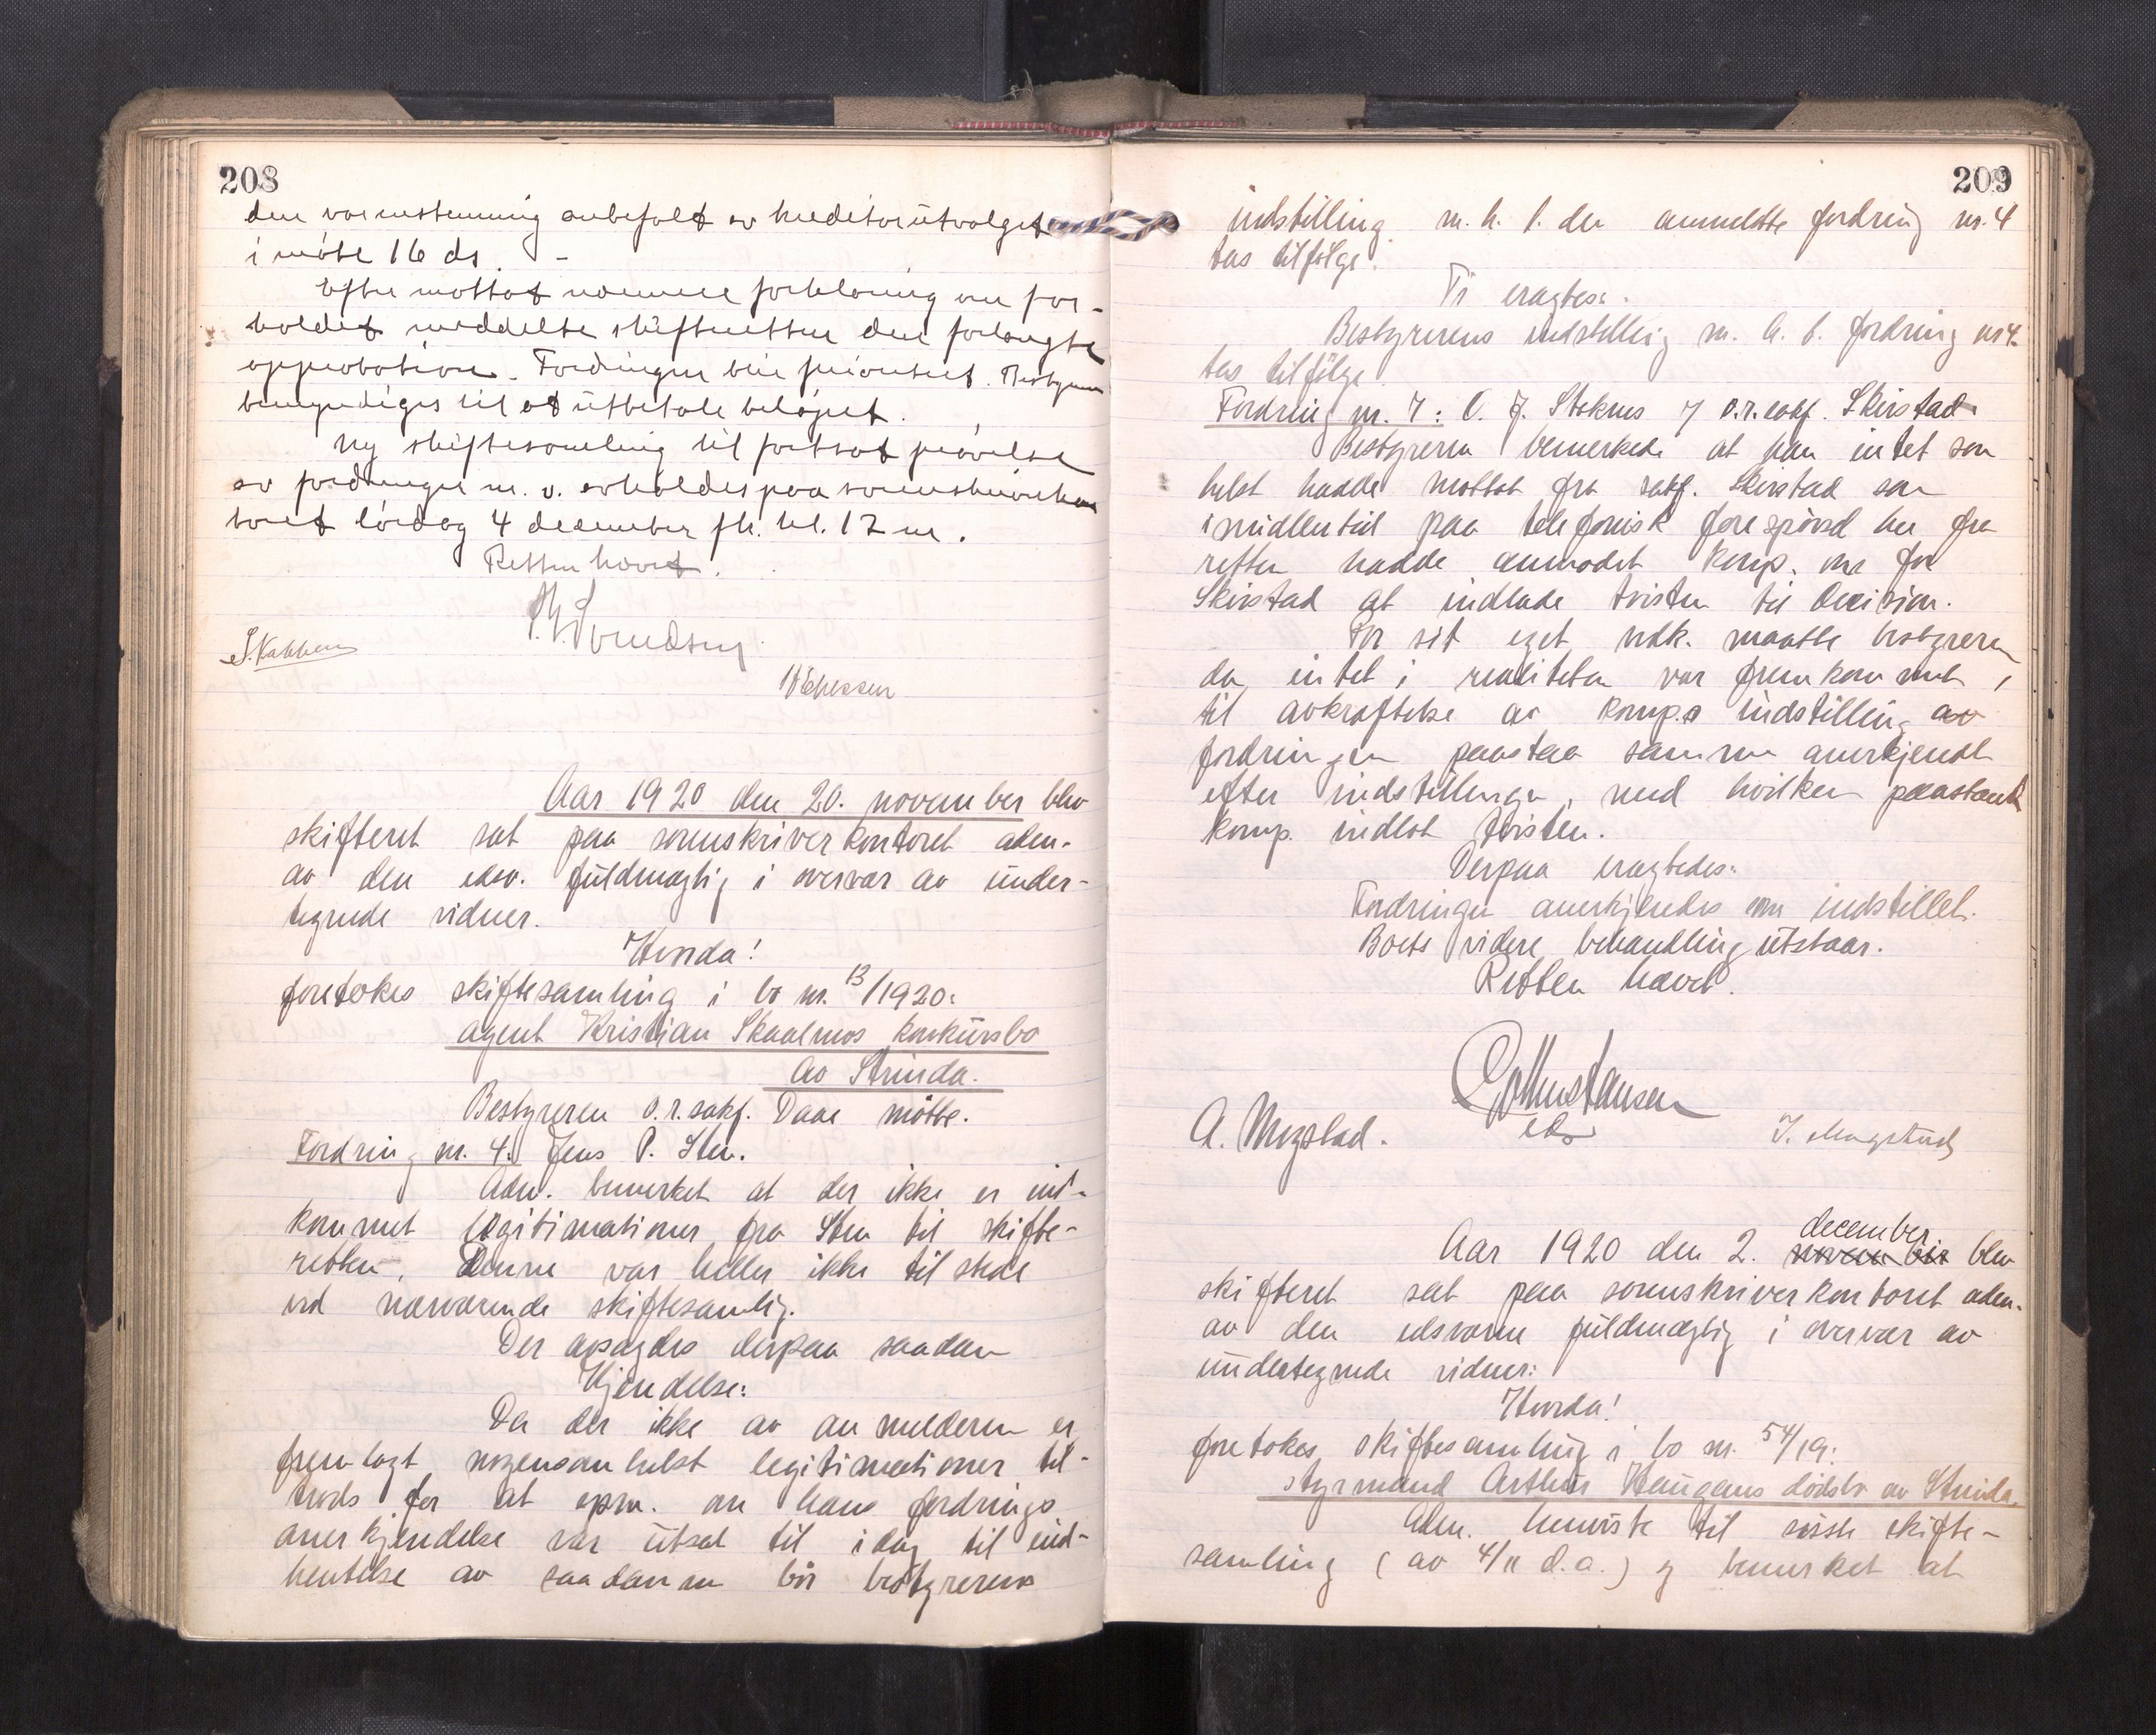 208
den var instemning anbefalt av kreditorutvalget
i møte 16 ds. -
Efter mottat nærmere forklaring om for-
holdet meddelte skifteretten den forlangte
approbation. Fordringen blir prioritert. Bestyreren
bemyndiges til at utbetale beløpet.
Ny skiftesamling til fortsat prøvelse
av fordringer m. v. avholdes paa sorenskriverkon
toret lørdag 4 december fk. kl. 12 m.
Retten hævet.
Aar 1920 den 20. november blev
skifteret sat paa sorenskriverkontoret adm.
av den edsv. fuldmægtig i overvær av under-
tegnede vidner.
Hvorda!
foretokes skiftesamling i bo nr. 13/1920:
agent Kristian Skaalmos konkursbo
av Strinda.
Bestyreren o.r.sakf. Daae møtte.
Fordring nr. 4. Jens P. Sten.
Adm. bemerket at der ikke er ind-
kommet legitimationer fra Sten til skifte-
retten. Denne var heller ikke tilstede
ved nærværende skiftesamlig.
Der avsagdes derpaa saadan
Kjendelse:
Da der ikke av anmelderen er
fremlagt nogensomhelst legitimationer til-
trods for at spm. om hans fordrings
anerkjendelse var utsat til idag til ind-
hentelse av saadanne bør bestyrerens
209
indstilling m. h. t. den anmeldte fordring nr. 4
tas tilfølge.
Ti eragtes:
Bestyrerens indstillig m. h. t. fordring nr 4.
tas tilfølge.
Fordring nr. 7: O. J. Stoknes v/ o.r.sakf. Skirstad.
Bestyreren bemerkede at han intet som
helst hadde mottat fra sakf. Skirstad som
imidlertid paa telefonisk forespørsel her fra
retten hadde anmodet komp. om for
Skirstad at indlade tvisten til decision.
For sit eget vedk. maatte bestyreren
da intet i realiteten var fremkommet
til avkræftelse av komp.s indstilling av
fordringen paastaa samme anerkjendt
efter indstillingen, med hvilken paastand
komp. indlot tvisten.
Derpaa eragtedes:
Fordringen anerkjendes som indstillet.
Boets videre behandling utstaar.
Retten hævet.
A. Mogstad.
eds
J. Mogstad
Aar 1920 den 2. december november blev
skifteret sat paa sorenskriverkontoret adm.
av den edsvorne fuldmægtig i overvær av
undertegnede vidner:
Hvorda!
foretokes skiftesamling i bo nr. 54/19:
styrmand Arthur Haugans dødsbo av Strinda.
Adm. henviste til sisste skifte-
samling (av 4/11 d.a.) og bemerket at